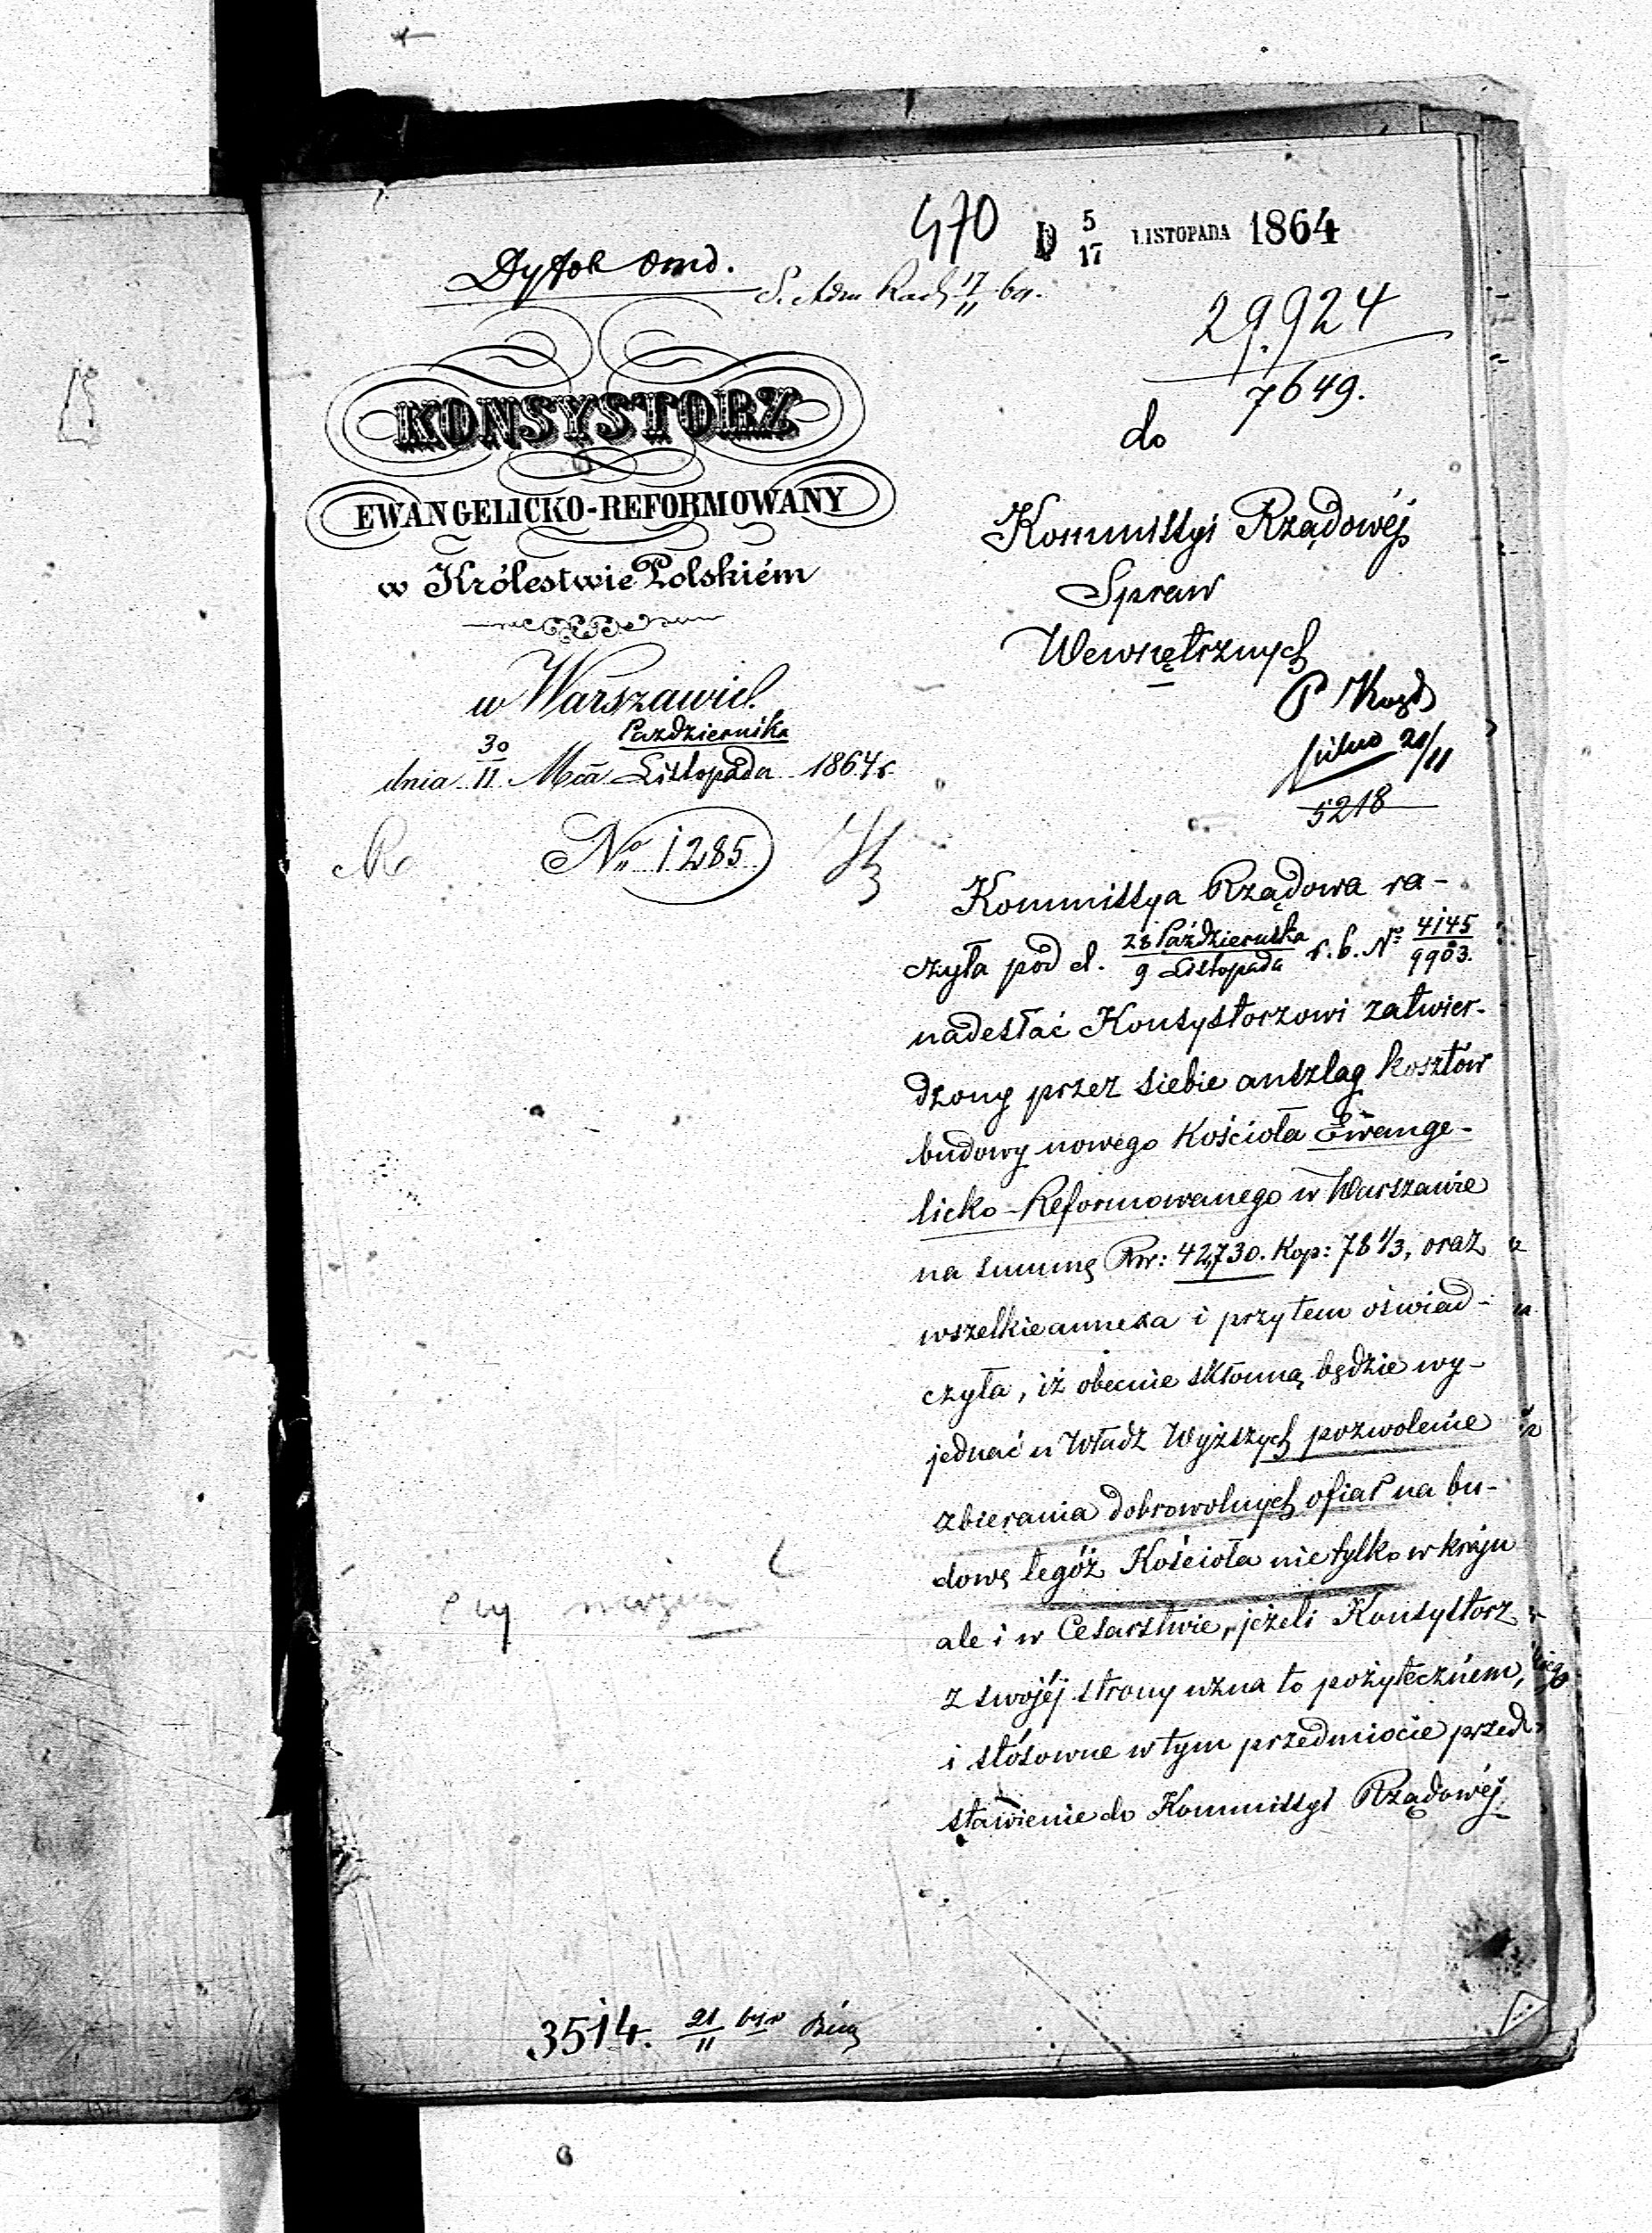 470
D 5/17 LISTOPADA 1864
29,924
7649.
KONSYSTORZ
EWANGELICKO-REFORMOWANY
w Królestwie Polskiém
w Warszawie.
dnia 30/11 Mca Października/Listopada 1864 r.
No 1285
do
Kommissyi Rządowéj
Spraw
Wewnętrznych
pilno 21/11
5218
Kommissya Rządowa ra-
czyła pod d. 28 Października/9 Listopada r. b. No 4145/9983.
nadesłać Konsystorzowi zatwier-
dzony przez siebie anszlag kosztów
budowy nowego Kościoła Ewange-
licko-Reformowanego w Warszawie
na summę Rsr: 42,730. Kop: 78 1/3, oraz
wszelkie annexa i przytem oświad-
czyła, iż obecnie skłonną będzie wy-
jednać u Władz Wyższych pozwolenie
zbierania dobrowolnych ofiar na bu-
dowę tegóż Kościoła nietylko w kraju
ale i w Cesarstwie, jeżeli Konsystorz
z swojéj strony uzna to pożyteczném,
i stósowne w tym przedmiocie przed-
stawienie do Kommissyi Rządowéj
3514. 21/11